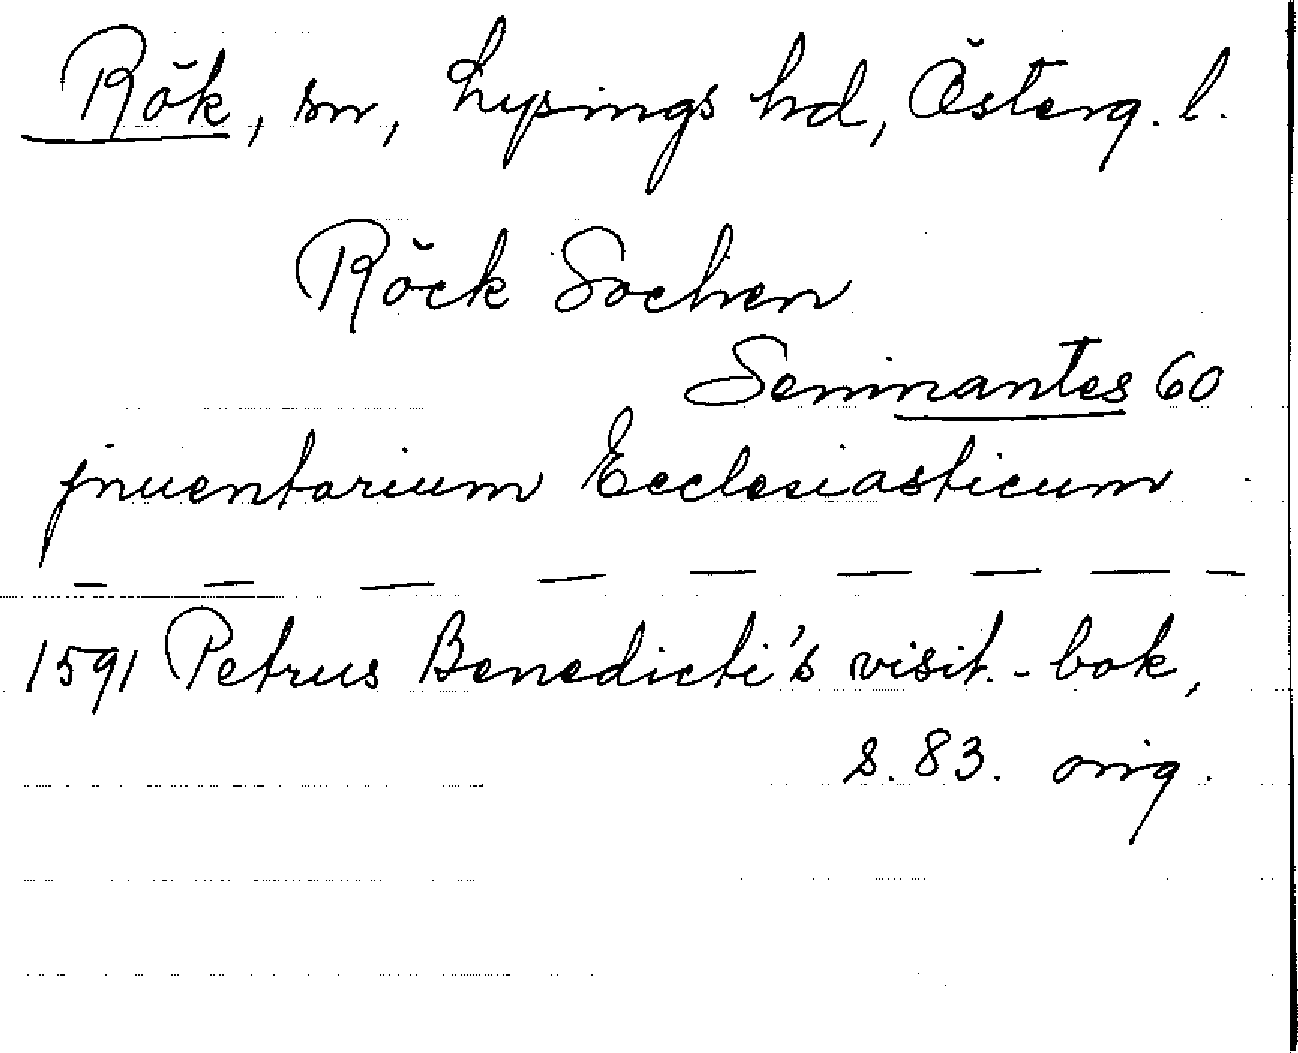 Rök, sn, Lysings hd, Österg. l.
Röck Sochen
Seminantes 60
jnuentorium Ecclesiasticum
— — — — — — — — —
1591 Petrus Benedicti's visit.-bok,
s. 83. orig.